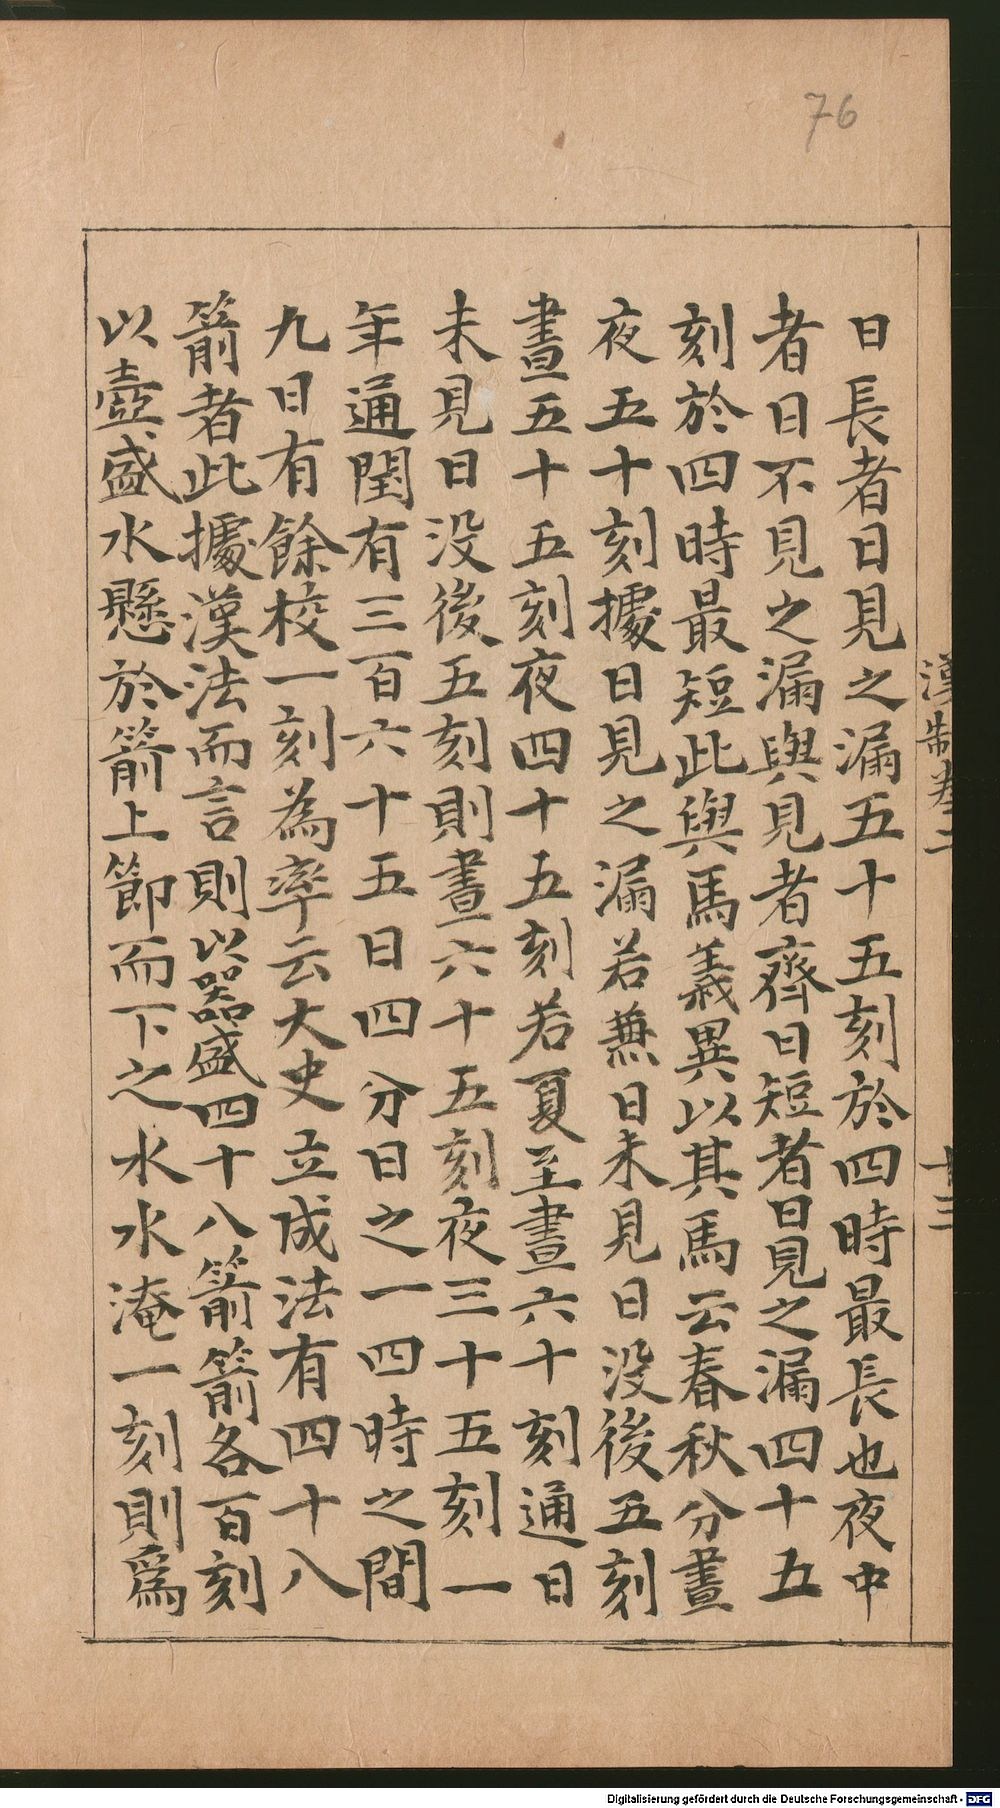 76
漢制卷二
十三
日長者日見之漏五十五刻於四時最長也夜中
者日不見之漏與見者齊日短者日見之漏四十五
刻於四時最短此與馬義異以其馬云春秋分晝
夜五十刻據日見之漏若兼日未見日没後五刻
晝五十五刻夜四十五刻若夏至晝六十刻通日
未見日没後五刻則晝六十五刻夜三十五刻一
年通閏有三百六十五日四分日之一四時之間
九日有餘校一刻為率云大史立成法有四十八
箭者此據漢法而言則以器盛四十八箭箭各百刻
以壺盛水懸於箭上節而下之水水淹一刻則爲
Digitalisierung gefördert durch die Deutsche Forschungsgemeinschaft - DFG